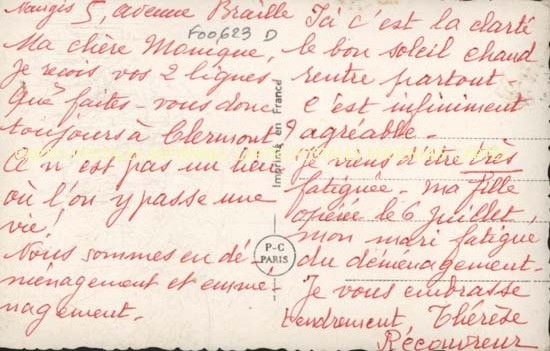 Nangis 5, avenue Braille
F00623 D
Ma chère Monique,
Je reçois vos 2 lignes,
Que faites-vous donc
toujours à Clermont ?
Ce n'est pas un lieu
où l'on y passe une
vie !
Nous sommes en dé-
ménagement et emmé
nagement.
Imprimé en France
P-C
PARIS
Ici c'est la clarté
le bon soleil chaud
rentre partout -
C'est infiniment
agréable -
Je viens d'être très
fatiguée - ma fille
opérée le 6 juillet,
mon mari fatigué
du déménagement -
Je vous embrasse
tendrement, Thérèse
Récouvreur